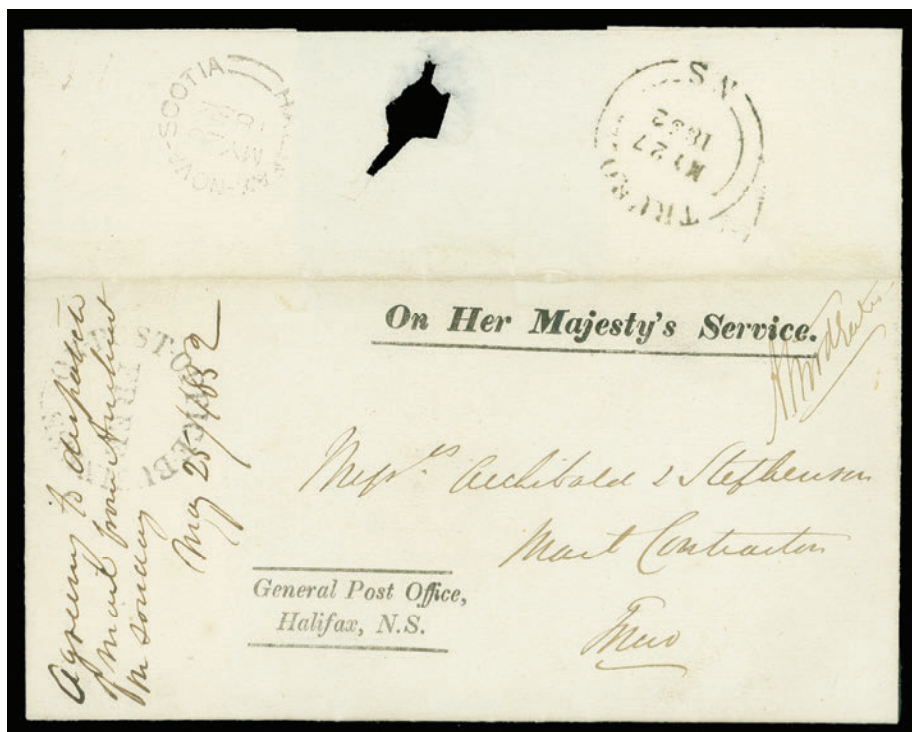 HALIFAX-NOVA-SCOTIA
MY
18
TRURO N.S
MY 27
1852
On Her Majesty's Service.
Messrs Archibald & Stephenson
Mail Contractors
Truro
General Post Office,
Halifax, N.S.
Agreeing to despatch
mail from Amherst
on sunday
May 25/1852
POST OFFICE
FREE